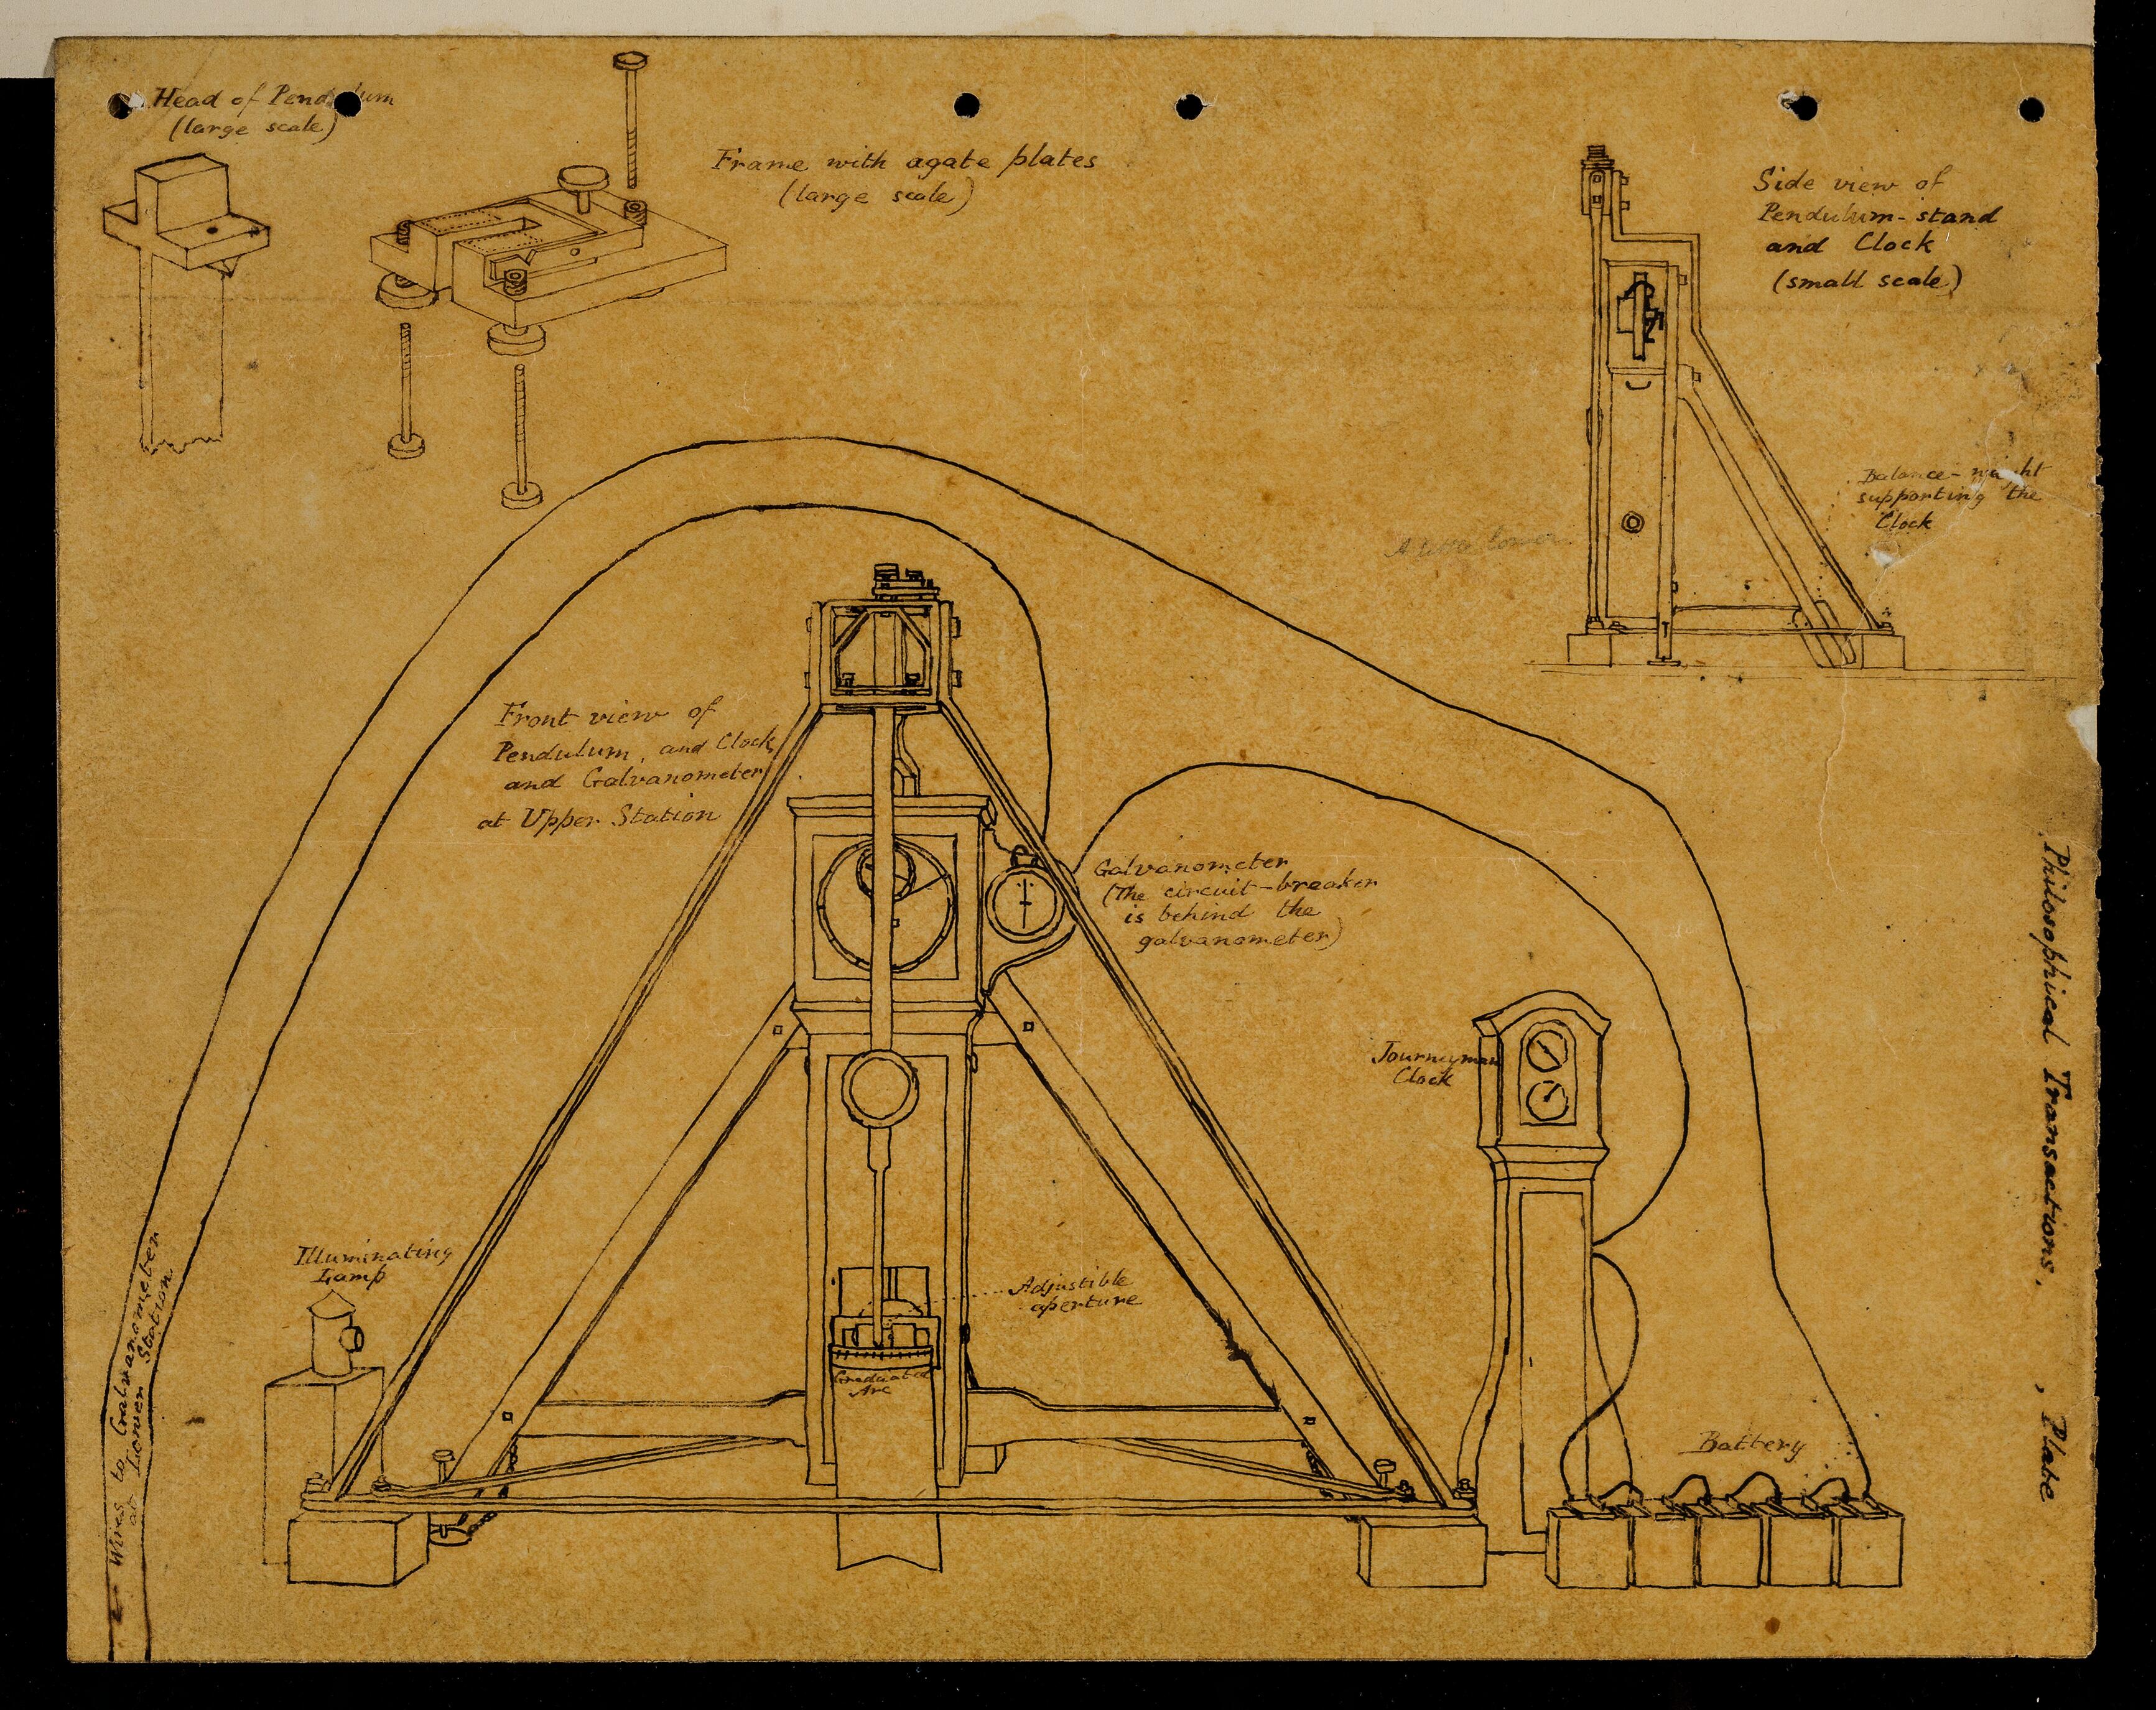 Head of Pendulum
(large scale)
Frame with agate plates
(large scale)
Side view of
Pendulum-stand
and Clock
(small scale)
Balance-weight
supporting the
Clock
A little lower
Front view of
Pendulum, and Clock
and Galvanometer
at Upper Station
Galvanometer
(The circuit-breaker
is behind the
galvanometer)
Journeyman
Clock
Illuminating
Lamp
Adjustible
aperture
Graduated
Arc
Battery
Wires to Galvanometer
at Lower Station
Philosophical Transactions. , Plate